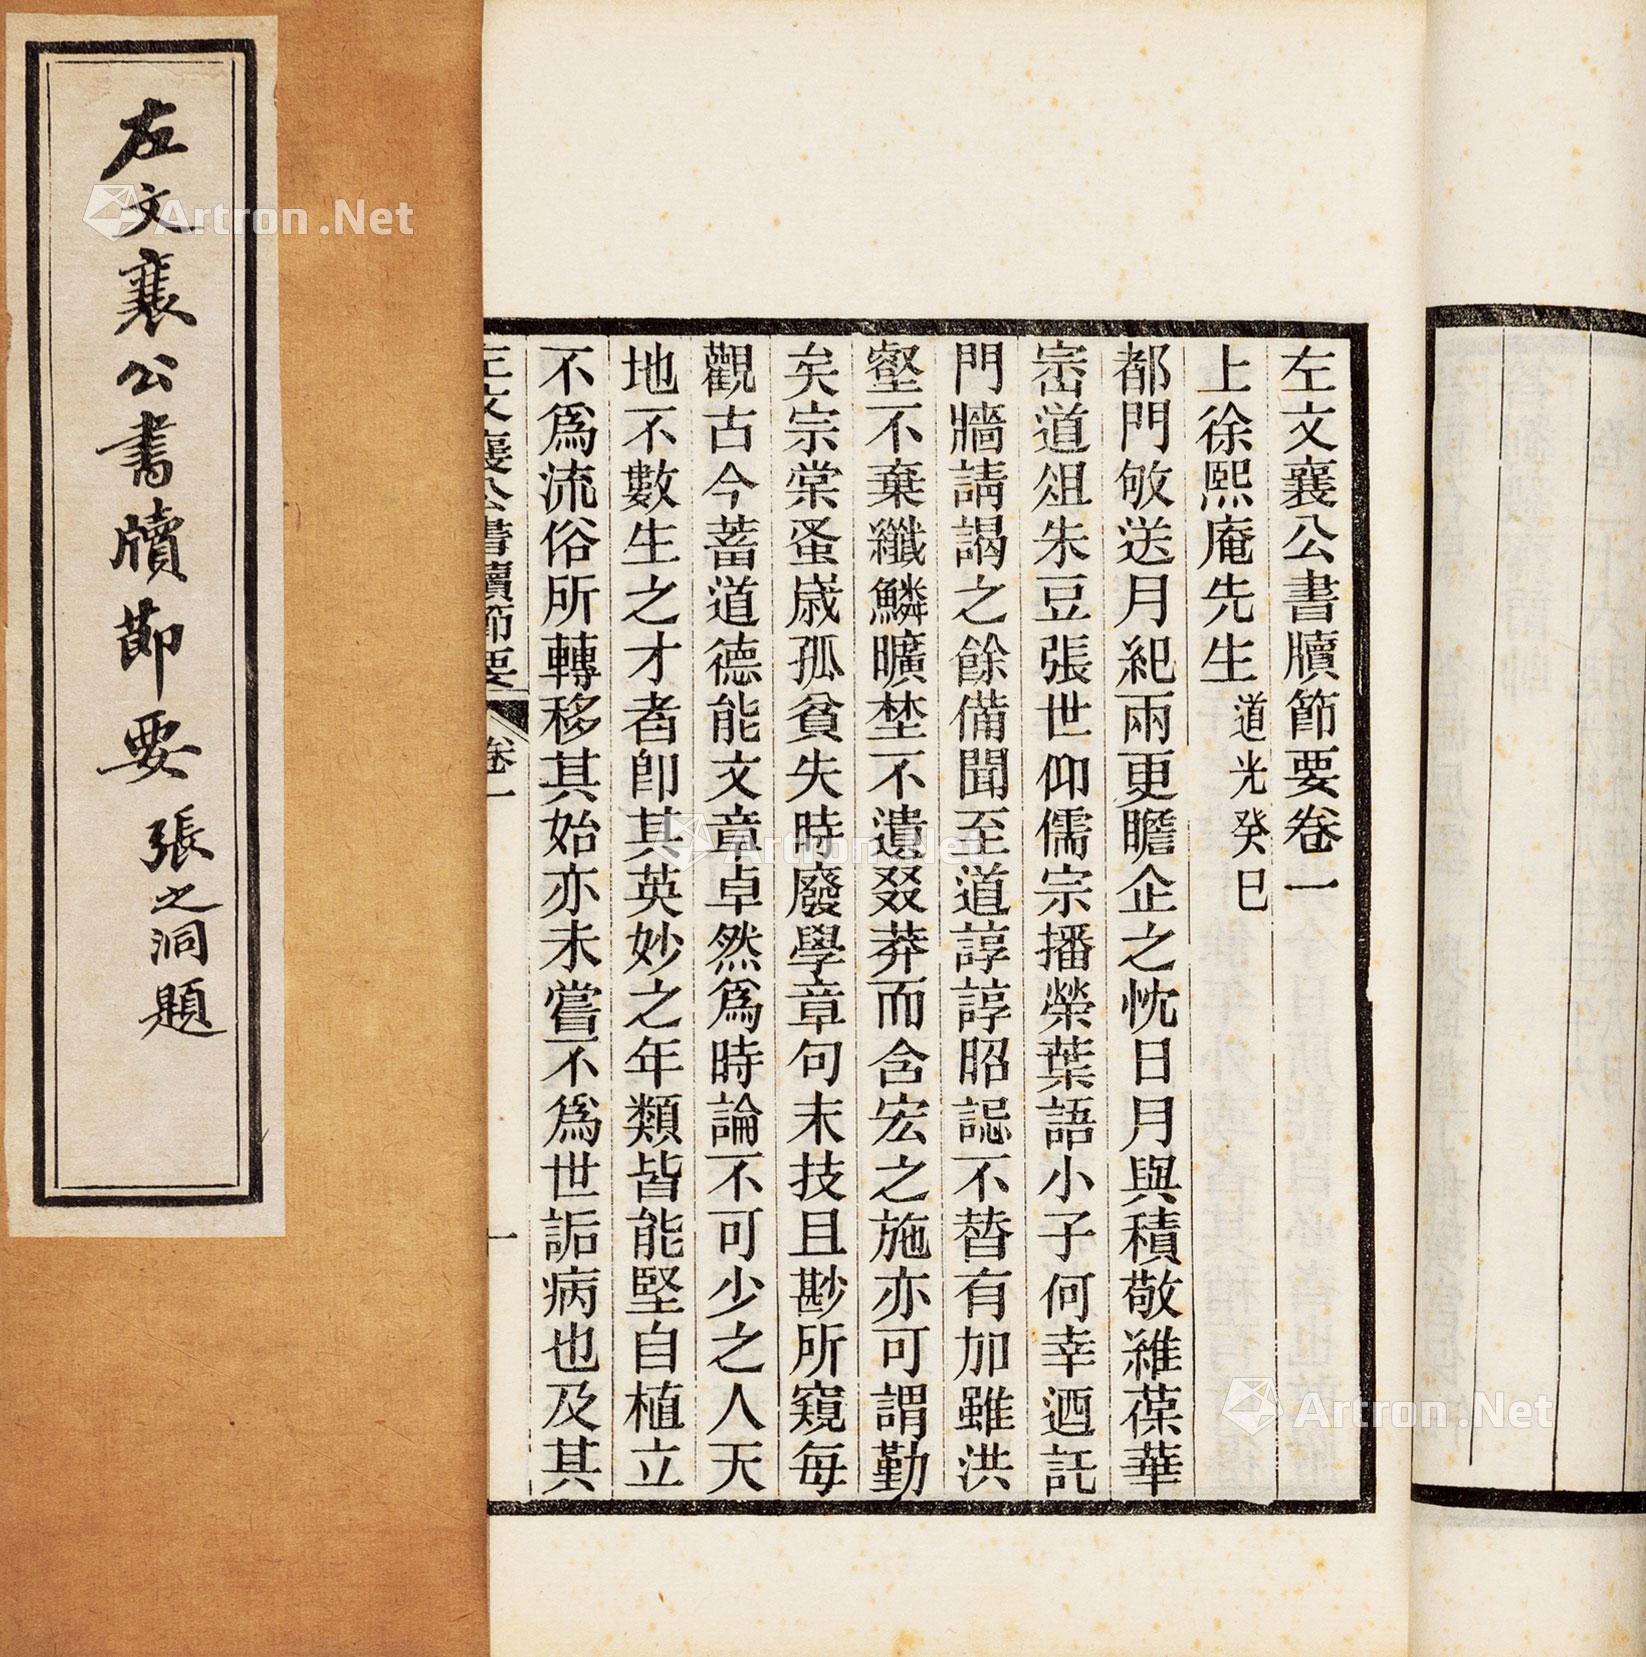 左文襄公書牘節要
張之洞題
左文襄公書牘節要卷一
上徐熙庵先生 道光癸巳
都門敂送月紀兩更瞻企之忱日月與積敬維葆華
崈道俎朱豆張世仰儒宗播榮葉語小子何幸迺託
門牆請謁之餘備聞至道諄諄昭誋不替有加雖洪
壑不棄纖鱗曠埜不遺叕莽而含宏之施亦可謂勤
矣宗棠蚤歲孤貧失時廢學章句末技且尠所窺每
觀古今蓄道德能文章卓然爲時論不可少之人天
地不數生之才者卽其英妙之年類皆能堅自植立
不爲流俗所轉移其始亦未嘗不爲世詬病也及其
左文襄公書牘節要 卷一 一
Artron.Net
Artron.Net
Artron.Net